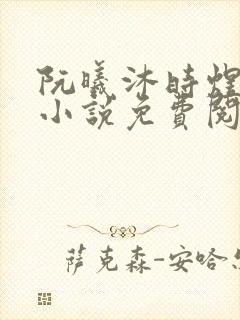 阮曦沐時煌
小說免費閱
萨克森-安哈